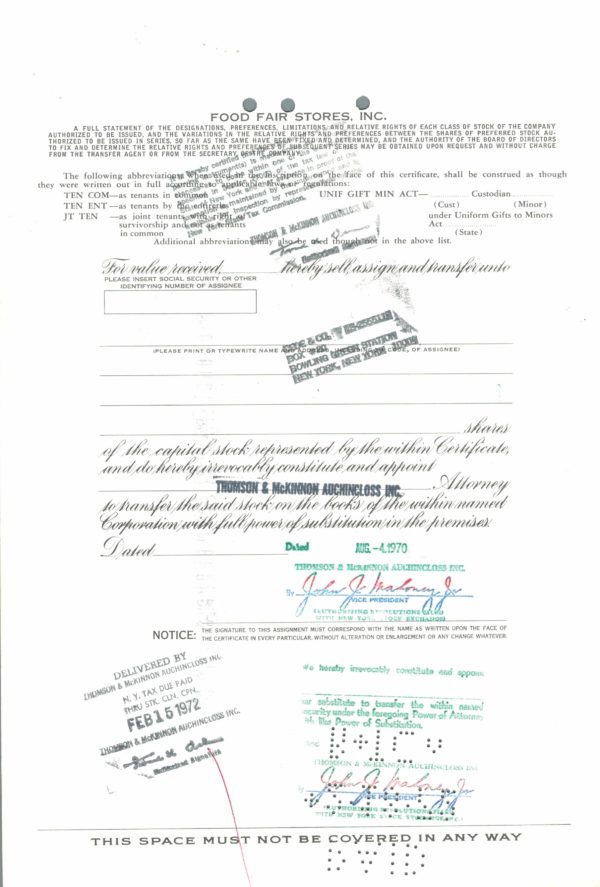 FOOD FAIR STORES, INC.
A FULL STATEMENT OF THE DESIGNATIONS, PREFERENCES, LIMITATIONS, AND RELATIVE RIGHTS OF EACH CLASS OF STOCK OF THE COMPANY
AUTHORIZED TO BE ISSUED, AND THE VARIATIONS IN THE RELATIVE RIGHTS AND PREFERENCES BETWEEN THE SHARES OF PREFERRED STOCK AU-
THORIZED TO BE ISSUED IN SERIES, SO FAR AS THE SAME HAVE BEEN FIXED AND DETERMINED, AND THE AUTHORITY OF THE BOARD OF DIRECTORS
TO FIX AND DETERMINE THE RELATIVE RIGHTS AND PREFERENCES OF SUBSEQUENT SERIES MAY BE OBTAINED UPON REQUEST AND WITHOUT CHARGE
FROM THE TRANSFER AGENT OR FROM THE SECRETARY OF THE COMPANY.
The following abbreviations, when used in the inscription on the face of this certificate, shall be construed as though
they were written out in full according to applicable laws or regulations:
TEN COM—as tenants in common UNIF GIFT MIN ACT— Custodian
TEN ENT—as tenants by the entireties (Cust) (Minor)
JT TEN —as joint tenants with right of under Uniform Gifts to Minors
survivorship and not as tenants Act
in common (State)
Additional abbreviations may also be used though not in the above list.
THOMSON & McKINNON AUCHINCLOSS INC.
Authorized Signature
For value received, hereby sell, assign and transfer unto
PLEASE INSERT SOCIAL SECURITY OR OTHER
IDENTIFYING NUMBER OF ASSIGNEE
(PLEASE PRINT OR TYPEWRITE NAME AND ADDRESS, INCLUDING ZIP CODE, OF ASSIGNEE)
& CO.
BOWLING GREEN STATION
NEW YORK, NEW YORK
shares
of the capital stock represented by the within Certificate,
and do hereby irrevocably constitute and appoint
THOMSON & McKINNON AUCHINCLOSS INC. Attorney
to transfer the said stock on the books of the within named
Corporation with full power of substitution in the premises.
Dated Dated AUG.-4.1970
THOMSON & McKINNON AUCHINCLOSS INC.
By John J Mahoney Jr
VICE PRESIDENT
NOTICE: THE SIGNATURE TO THIS ASSIGNMENT MUST CORRESPOND WITH THE NAME AS WRITTEN UPON THE FACE OF
THE CERTIFICATE IN EVERY PARTICULAR, WITHOUT ALTERATION OR ENLARGEMENT OR ANY CHANGE WHATEVER.
DELIVERED BY
THOMSON & McKINNON AUCHINCLOSS INC.
N. Y. TAX DUE PAID
THRU STK. CLN. CPN.
FEB 15 1972
THOMSON & McKINNON AUCHINCLOSS INC.
Authorized Signature
We hereby irrevocably constitute and appoint
our substitute to transfer the within named
security under the foregoing Power of Attorney
with like Power of Substitution.
THOMSON & McKINNON AUCHINCLOSS INC
By John J Mahoney Jr
VICE PRESIDENT
THIS SPACE MUST NOT BE COVERED IN ANY WAY